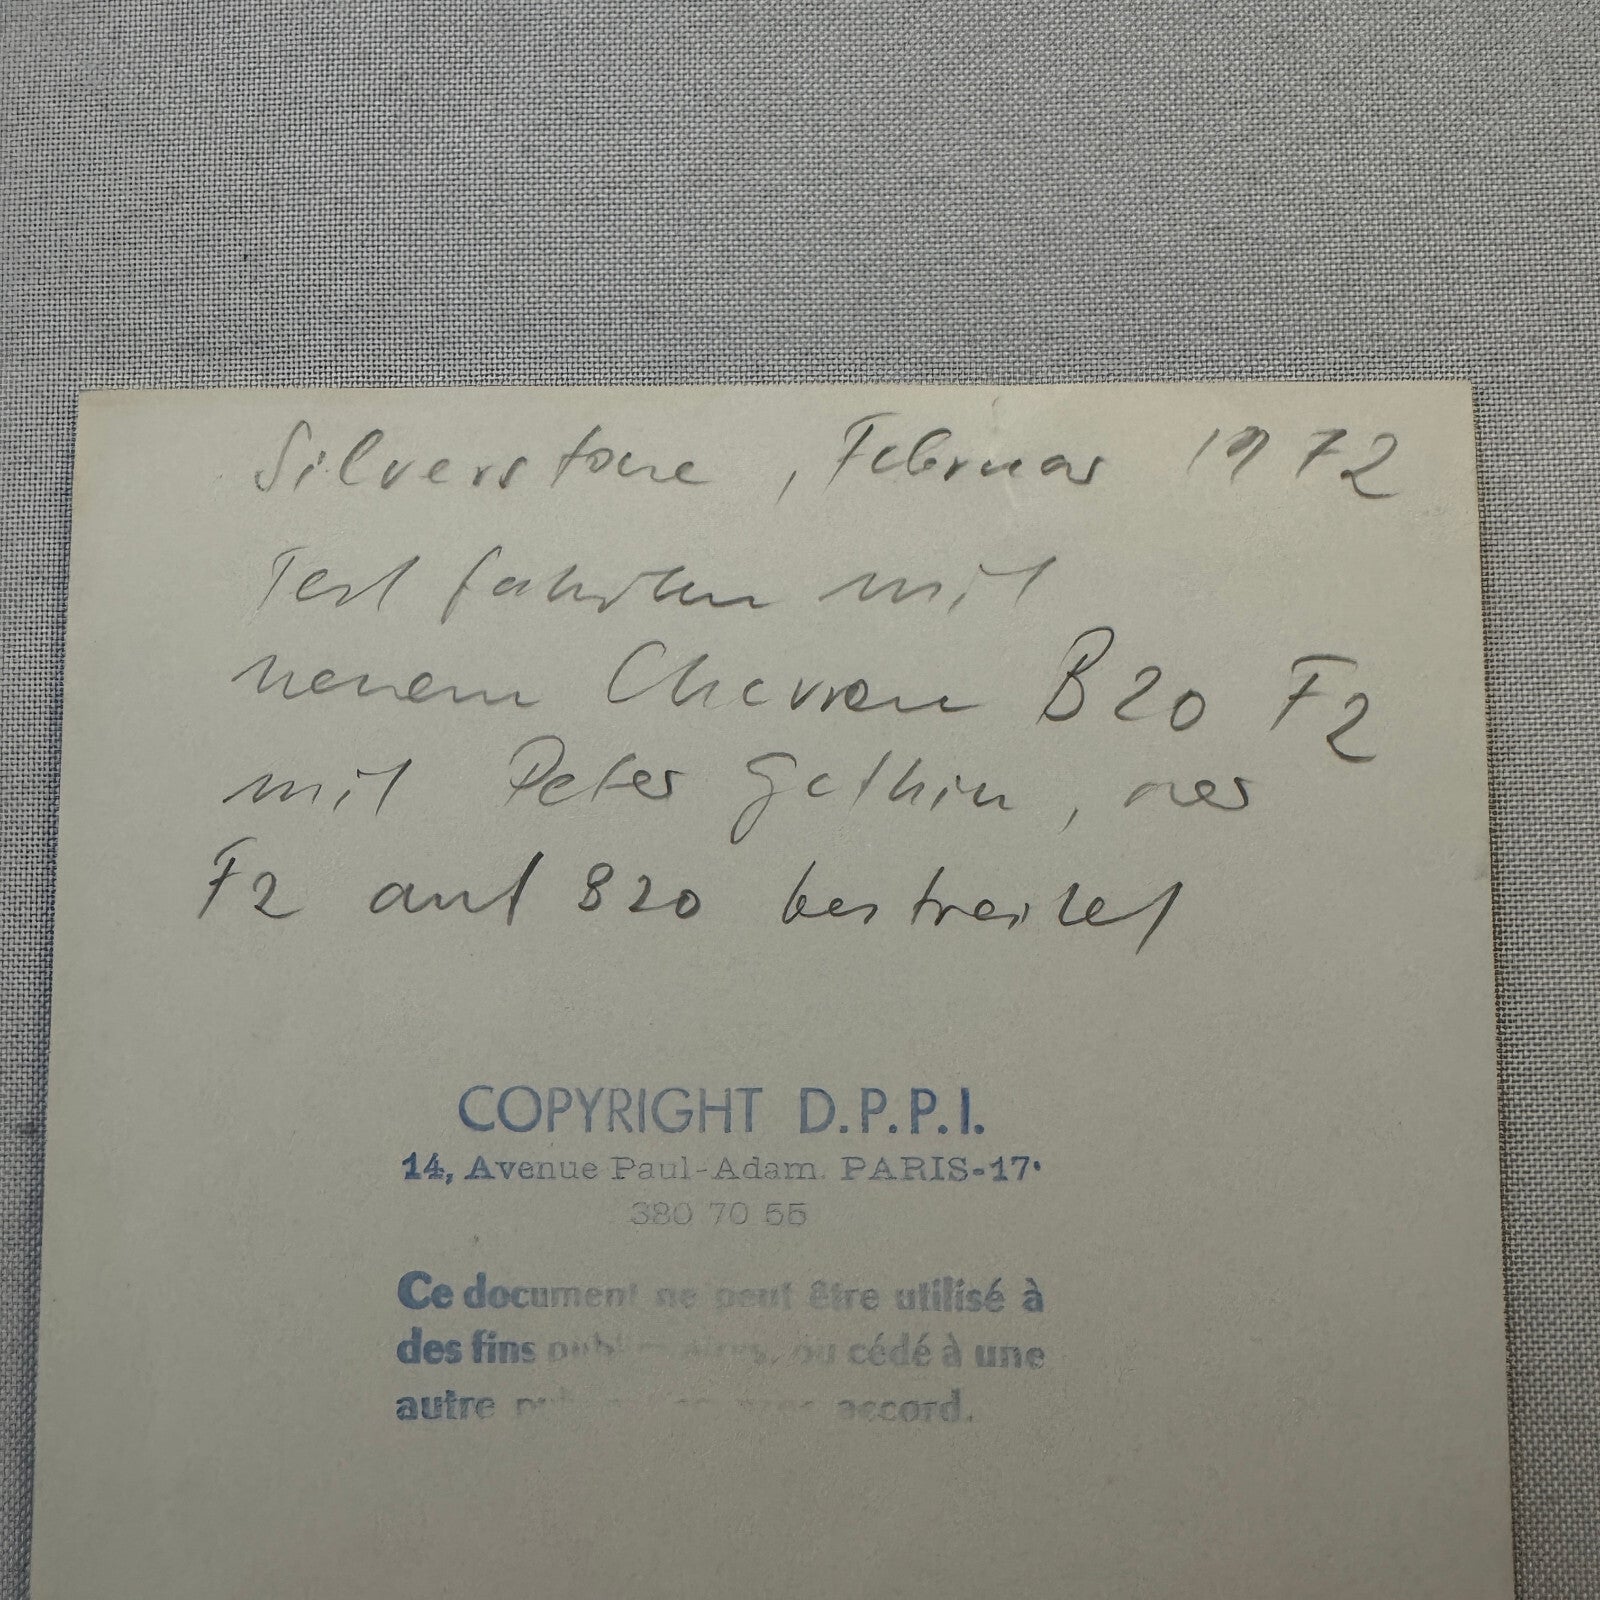 Silverstone, Februar 1972
Testfahrten mit
neuem Chevron B20 F2
mit Peter Gethin, der
F2 auf B20 bestreitet
COPYRIGHT D.P.P.I.
14, Avenue Paul-Adam. PARIS-17•
380 70 55
Ce document ne peut être utilisé à
des fins publicitaires, ou cédé à une
autre accord.